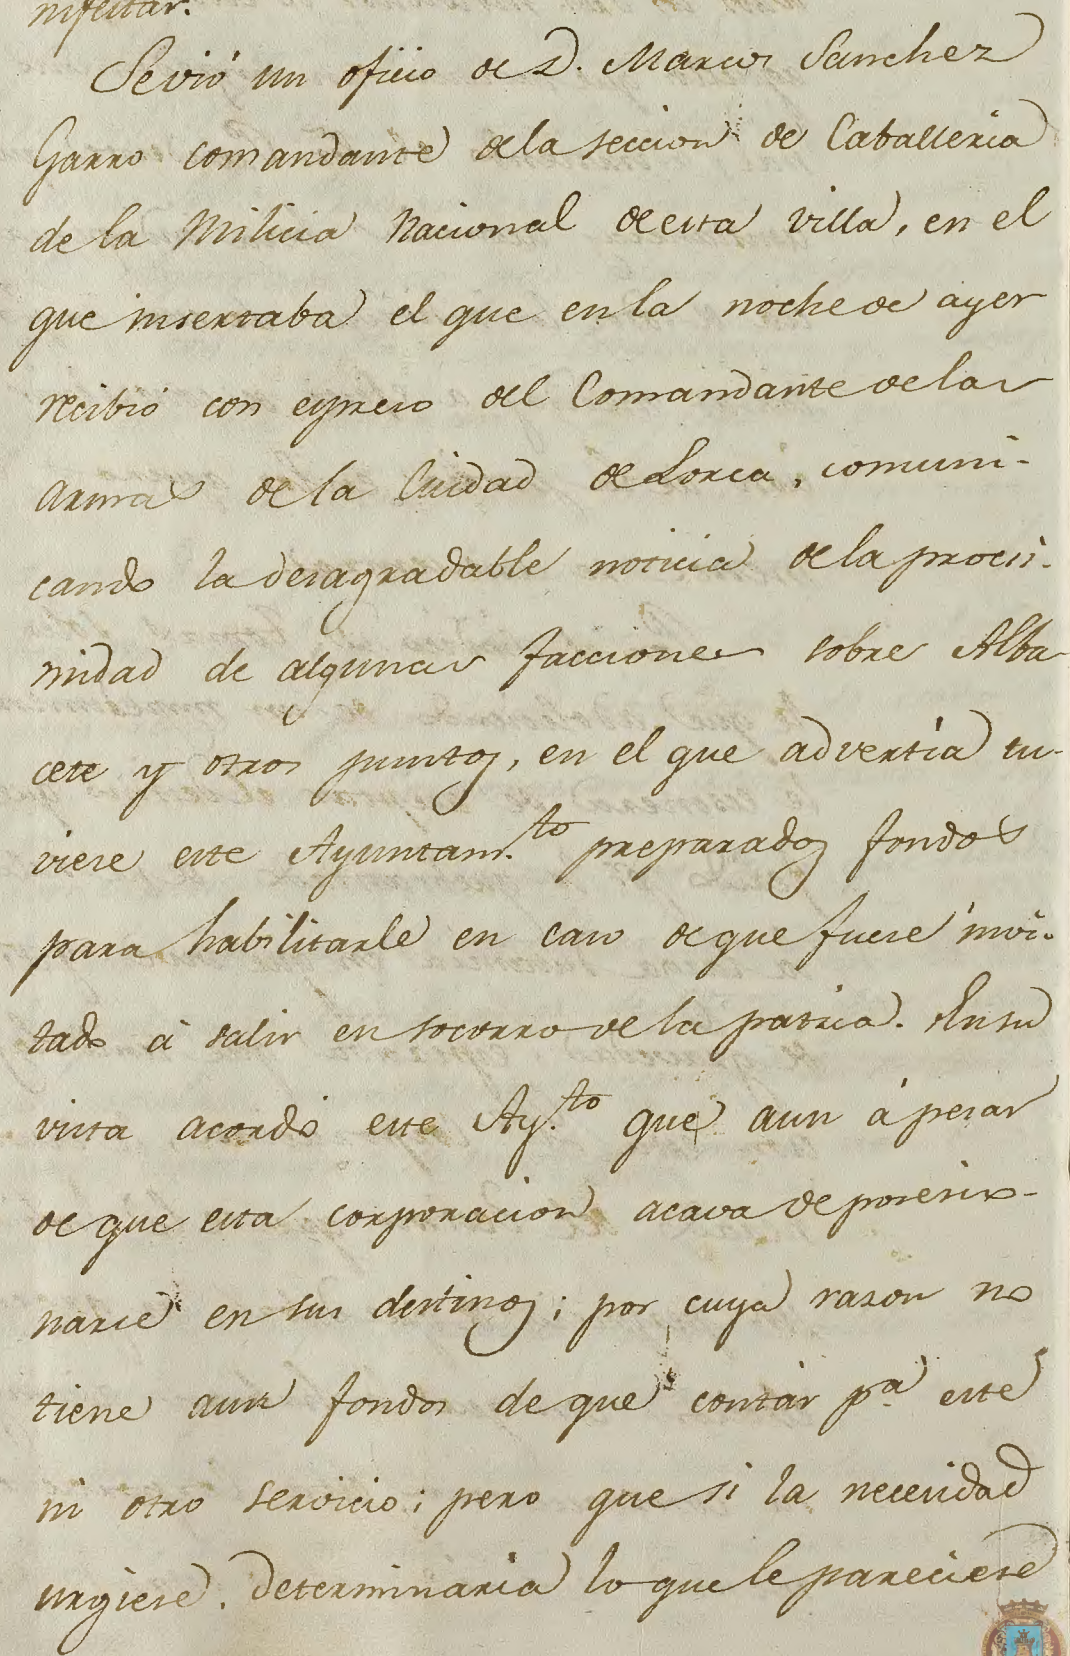 nifestar.
Se vió un oficio de D. Marcos Sanchez
Garro comandante de la seccion de Caballeria
de la Milicia Nacional de esta villa, en el
que insertaba el que en la noche de ayer
recibió con espreso del Comandante de las
Armas de la Ciudad de Lorca, comuni-
cando la desagradable noticia de la procsi-
midad de algunas facciones sobre Alba-
cete y otros puntos, en el que advertia tu-
viese este Ayuntam.to preparados fondos
para habilitarle en caso de que fuese invi-
tado á salir en socorro de la patria. En su
vista acordó este Ay.to que aun á pesar
de que esta corporacion acava de posesio-
narse en sus destinos; por cuya razon no
tiene aun fondos de que contar pa. este
ni otro servicio; pero que si la necesidad
urgiese, determinaria lo que le pareciese